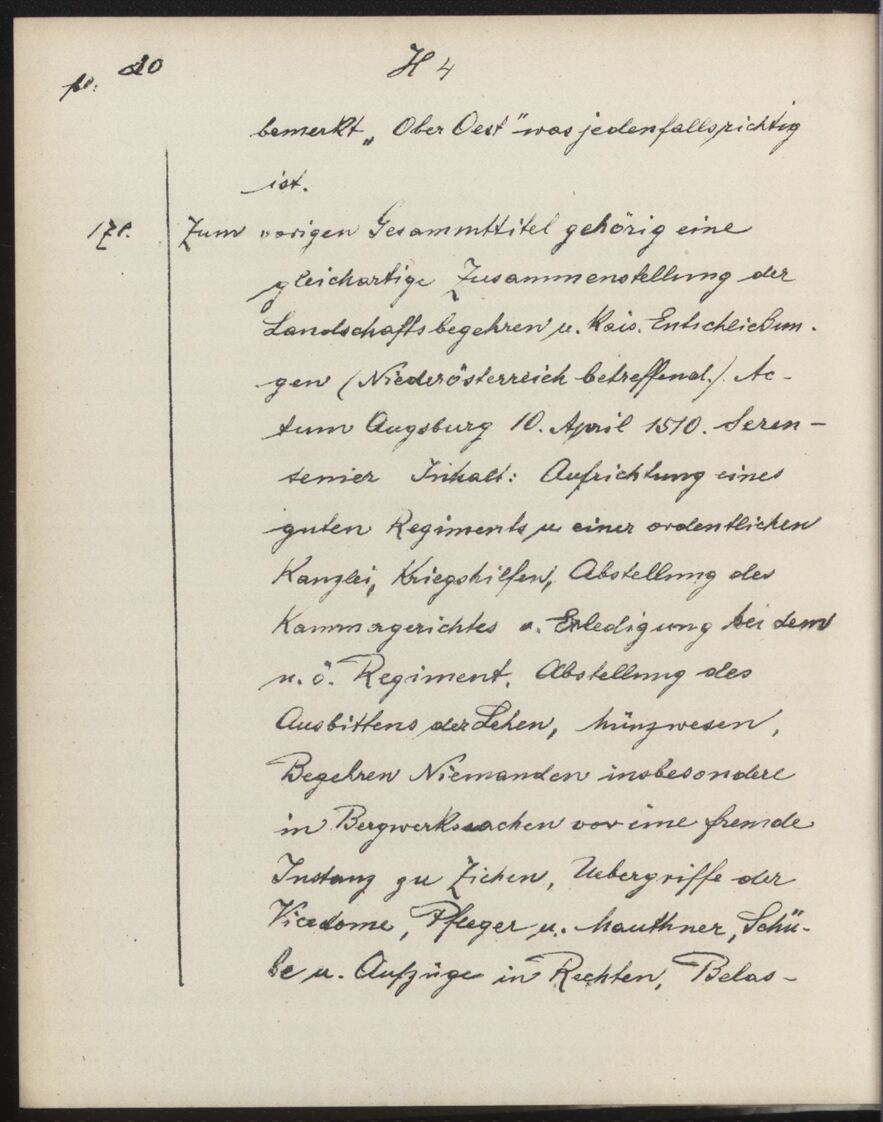 p. 20 H 4
bemerkt „Ober Oest" was jedenfalls richtig
ist.
Zum vorigen Gesammttitel gehörig eine
gleichartige Zusammenstellung der
Landschaftsbegehren u. kais. Entschließun-
gen (Niederösterreich betreffend). Ac-
tum Augsburg 10. April 1510.
Inhalt: Aufrichtung eines
guten Regiments u. einer ordentlichen
Kanzlei, Kriegshilfen, Abstellung des
Kammergerichtes u. Erledigung bei dem
n. ö. Regiment. Abstellung des
Ausbittens der Lehen, Münzwesen,
Begehren Niemanden insbesondere
in Bergwerksachen vor eine fremde
Instanz zu Ziehen, Uebergriffe der
Vicedome, Pfleger u. Mauthner, Schü-
be u. Aufzüge in Rechten, Belas-